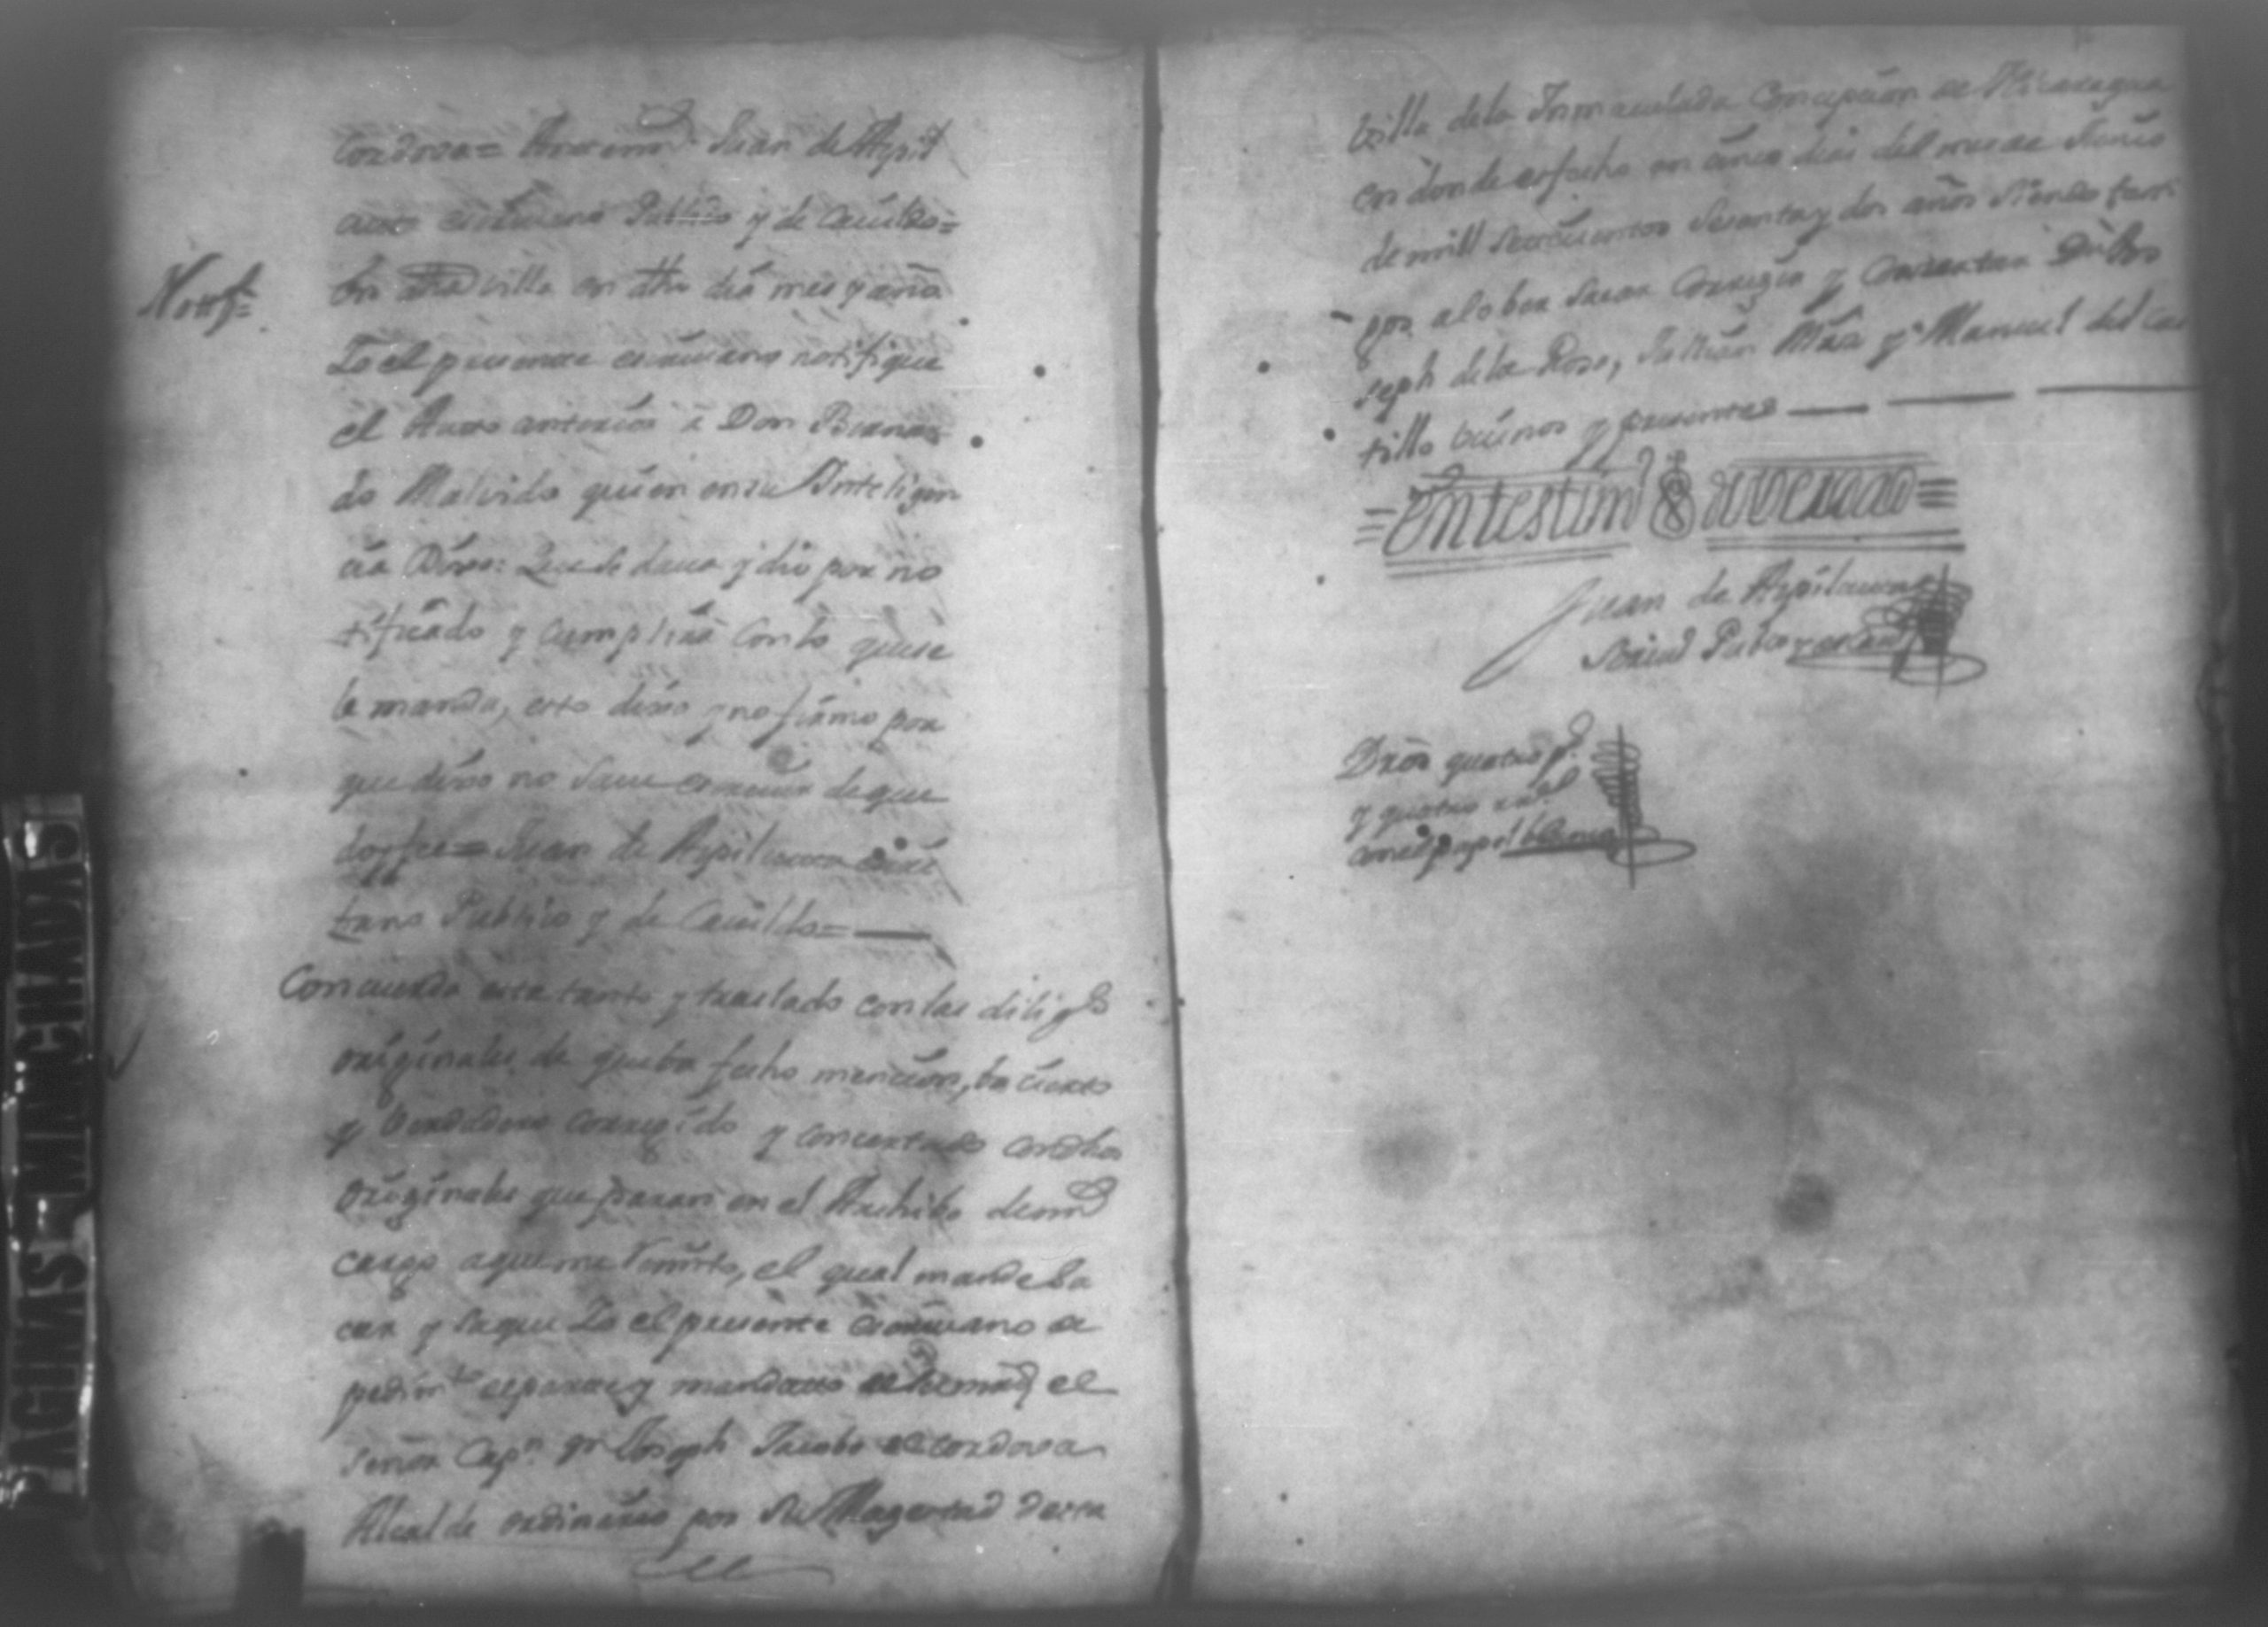 Cordova = Ante mi Juan de Azpil
cueta escrivano Publico y de Cavildo =
Notif.ⁿ
En dha villa en dho dia mes y año
Yo el presente escrivano notifique
el Auto antesior a Don Bernar
do Malvido quien en su Inteligen
cia Dixo: Que se dava y dio por no
tificado y cumplira con lo que se
le manda, esto dixo y no firmo por
que dixo no save escrivir de que
doy fee = Juan de Azpilcueta escri
vano Publico y de Cavildo =
Concuerda este tanto y traslado con las dilig.s
originales de que ba fecho mencion, ba cierto
y verdadero corregido y concertado con dhos
originales que paran en el Archibo de mi
cargo a que me remito, el qual mande sa
car y saque Yo el presente escrivano de
pedim.to de parte y mandato de el
señor Cap.n Dn Joseph Jacobo de Cordova
Alcalde ordinario por Su Magestad desta
Villa de la Inmaculada Concepcion de Nicaragua
en donde es fecho en cinco dias del mes de Junio
de mill settecientos sesenta y dos años siendo testi
gos a lo ber sacar Corregir y Concertar
seph de la Rosa, Julian y Manuel del Cas
tillo vecinos y presentes
= En testim.o de verdad =
Juan de Azpilcueta
Scriv.o Pub.co y de Cav.do
Dros quatro p.s
y quatro rr.s
con el papel
PAGINAS MANCHADAS